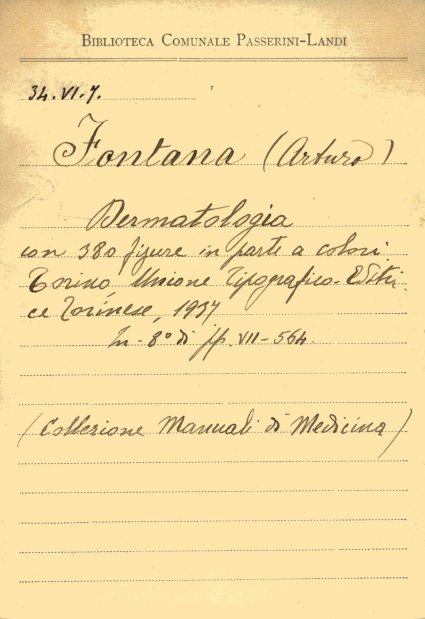 BIBLIOTECA COMUNALE PASSERINI-LANDI
34.VI.7.
Fontana (Arturo)
Dermatologia
con 380 figure in parte a colori.
Torino, Unione Tipografico-Editri-
ce Torinese, 1937
In-8° di pp. VII-564.
(Collezione Manuali di Medicina)